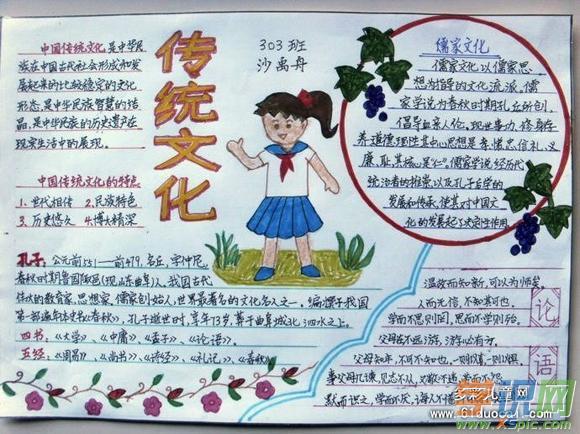 传统文化
303班
沙禹舟
中国传统文化是中华民
族在中国古代社会形成和发
展起来的比较稳定的文化
形态,是中华民族智慧的结
晶,是中华民族的历史遗产在
现实生活中的展现。
中国传统文化的特点
1、世代相传 2、民族特色
3、历史悠久 4、博大精深
儒家文化
儒家文化以儒家思
想为指导的文化流派,儒
家学说为春秋时期孔丘所创,
倡导血亲人伦、现世事功、修身存
养、道德理性其中心思想是孝、悌、忠、信、礼、义
廉、耻,其核心是“仁”。儒家学说经历代
统治者的推崇,以及孔子后学的
发展和传承,使其对中国文
化的发展起了决定性作用
孔子:公元前551—前479,名丘,字仲尼,
春秋时期鲁国陬邑(现山东曲阜)人,我国古代
伟大的教育家、思想家,儒家创始人,世界最著名的文化名人之一。编撰了我国
第一部编年体史书《春秋》,孔子逝世时,享年73岁,葬于曲阜城北泗水之上。
四书:《大学》、《中庸》、《孟子》、《论语》。
五经:《周易》、《尚书》、《诗经》、《礼记》、《春秋》
论语
温故而知新,可以为师矣。
人而无信,不知其可也。
学而不思则罔,思而不学则殆。
父母在不远游,游必有方。
父母知年,不可不知也,一则以喜,一则以惧
事父母几谏,见志不从,又敬不违,劳而不怨
默而识之,学而不厌,诲人不倦
多彩儿童网
www.61duocai.com
www.xspic.com